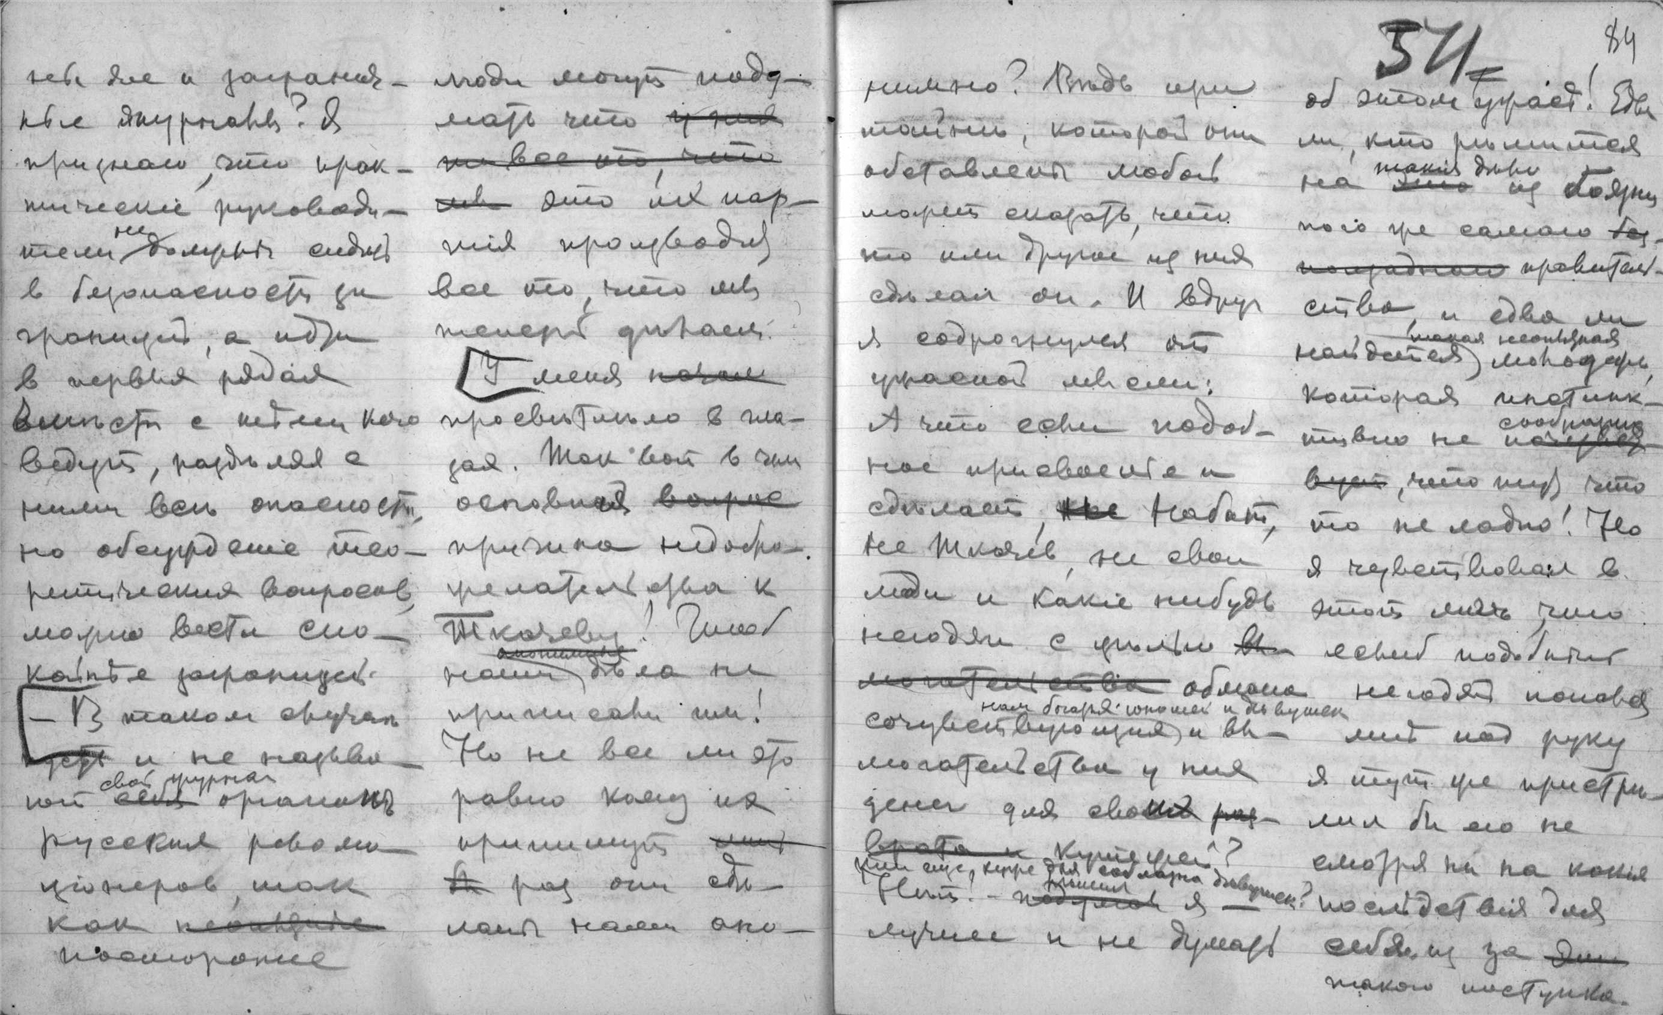 ные же и заграни-
ные журналы? Я
признаю, что прак-
тическіе руководи-
тели не должны сидѣть
в безопасности за
границей, а идти
в первых рядах
вмѣстѣ с тѣми кого
ведут, раздѣляя с
ними всѣ опасности,
но обсужденіе тео-
ретических вопросов
можно вести спо-
койнѣе заграницей.
— В таком случаѣ
и не называ-
ют свой журнал органом
русских револю-
ціонеров, так
как
посторонніе
люди могут поду-
мать что у них
все то, что
мы это их пар-
тія производит
все то, что мы
теперь дѣлаем.
У меня начало
просвѣтлѣло в гла-
зах. Так вот в чем
основная вопрос
причина недобро-
желательства к
Ткачеву! Чтоб
анонимные
наши дѣла не
приписали им!
Но не все ли это
равно кому их
припишут
раз они сдѣ-
ланы нами ано-
54
84
нимно? Вѣдь при
тайнѣ, которой они
обставлены любой
может сказать, что
то или другое из них
сдѣлал он. И вдруг
я содрогнулся от
ужасной мысли:
А что если подоб-
ное присвоеніе и
сдѣлает, не Набат,
не Ткачёв, не свои
люди и какіе нибудь
негодяи с цѣлью вы-
могательства обмана
нам богатых юношей и дѣвушек
сочувствующих и вы-
могательства у них
денег для своих раз-
врата и кутежей?
или еще хуже для соблазна дѣвушек?
Нѣт! — подумал рѣшил я —
лучше и не думать
об этом ужасѣ! Едва
ли, кто рѣшится
такія дѣла
на это из боязни
того же самаго без-
пощаднаго правитель-
ства, и едва ли
такая неопытная
найдется молодежь,
которая инстинк-
сообразит
тивно не почувст-
вует, что тут что
то не ладно! Но
я чувствовал в
этот миг, что
еслиб подобный
негодяй попался
мнѣ под руку
я тут же пристрѣ-
лил бы его не
смотря ни на какія
послѣдствія для
себя из за
такого поступка.